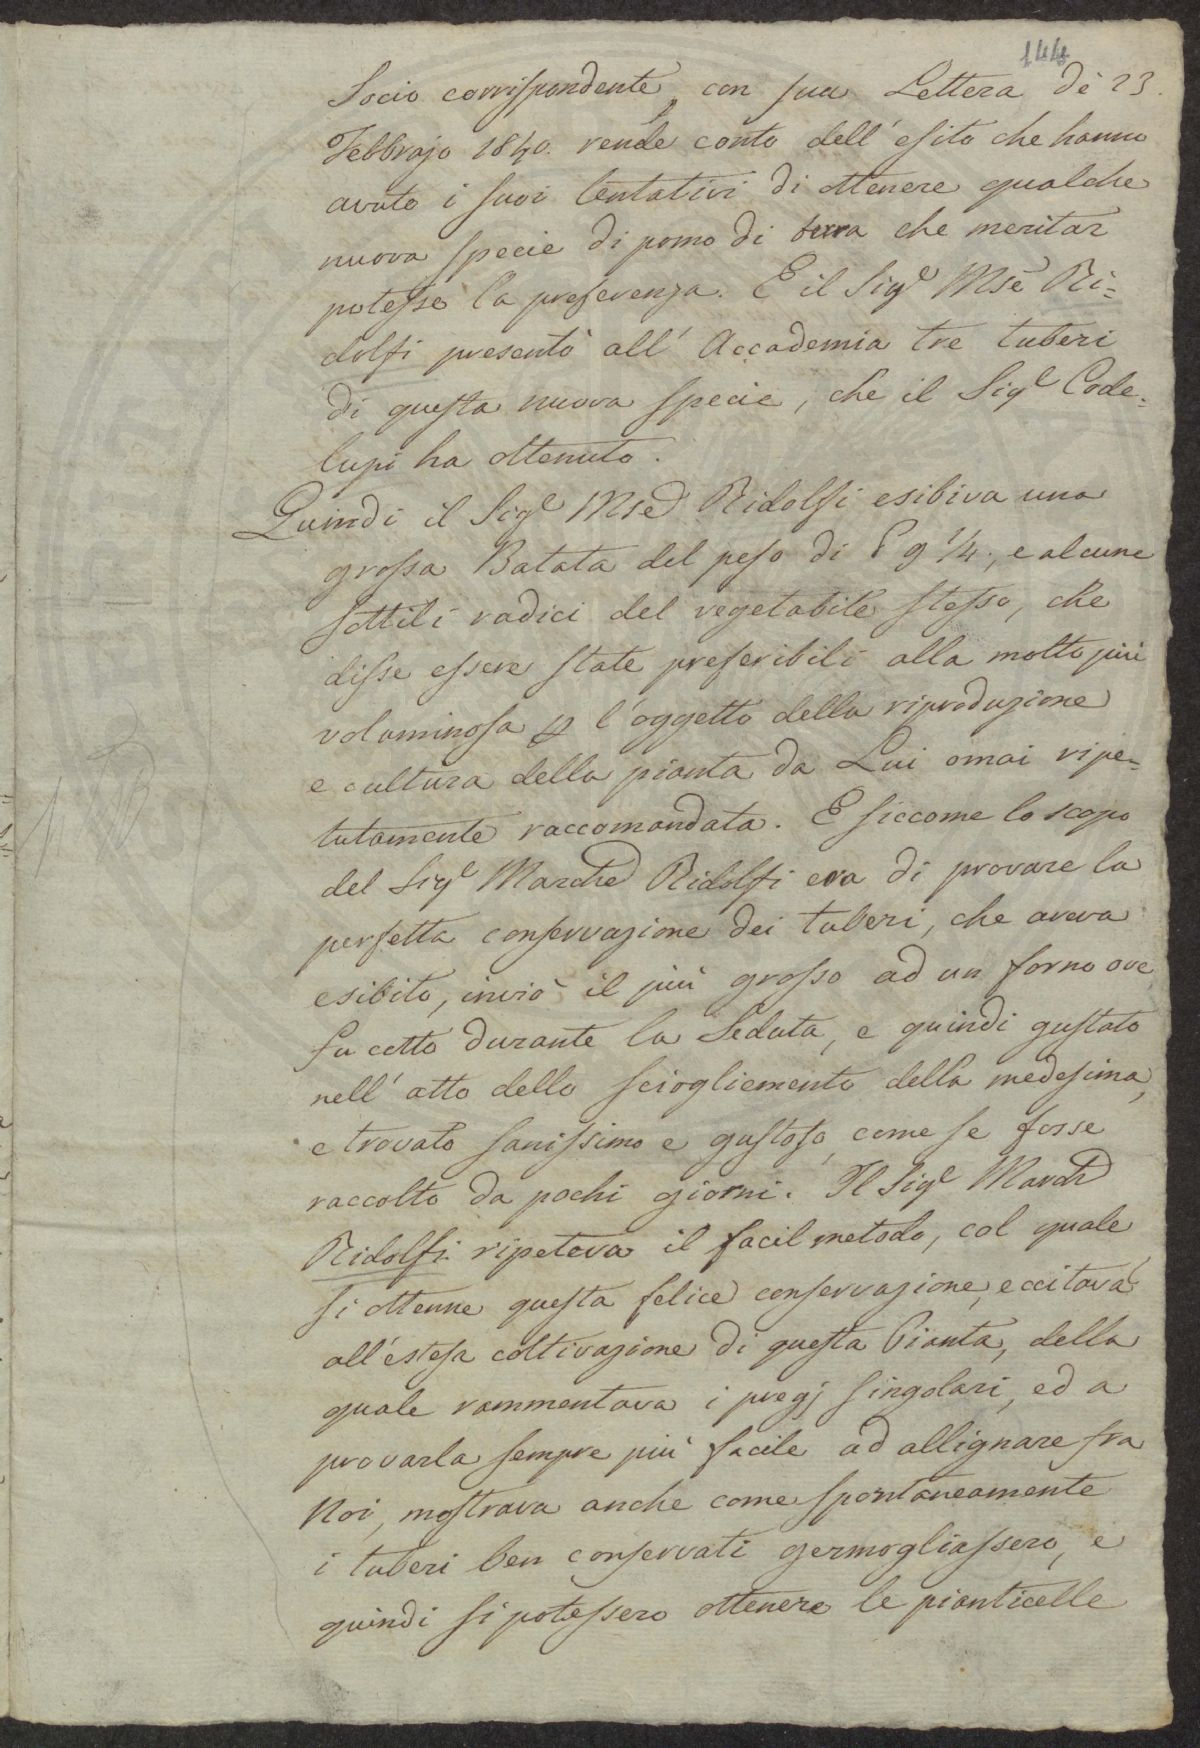 144
Socio corrispondente, con sua Lettera de 23.
Febbrajo 1840. rende conto dell' esito che hanno
avuto i suoi tentativi di ottenere qualche
nuova specie di pomo di terra che meritar
potesse la preferenza. E il Sigre Mse Ri=
dolfi presentò all' Accademia tre tuberi
di questa nuova specie, che il Sigre Code=
lupi ha ottenuto.
Quindi il Sigre Mse Ridolfi esibiva una
grossa Batata del peso di 9 1/4, e alcune
sottili radici del vegetabile stesso, che
disse essere state preferibili alla molto più
voluminosa p l'oggetto della riproduzione
e cultura della pianta da Lui omai ripe=
tutamente raccomandata. E siccome lo scopo
del Sigre Marche Ridolfi era di provare la
perfetta conservazione dei tuberi, che aveva
esibito, inviò il più grosso ad un forno ove
fu cotto durante la Seduta, e quindi gustato
nell' atto dello scioglimento della medesima,
e trovato sanissimo e gustoso, come se fosse
raccolto da pochi giorni. Il Sigre March
Ridolfi ripeteva il facil metodo, col quale
si ottenne questa felice conservazione, eccitava
all'estesa coltivazione di questa Pianta, della
quale rammentava i pregj singolari, ed a
provarla sempre più facile ad allignare fra
Noi, mostrava anche come spontaneamente
i tuberi ben conservati germogliassero, e
quindi si potessero ottenere le pianticelle